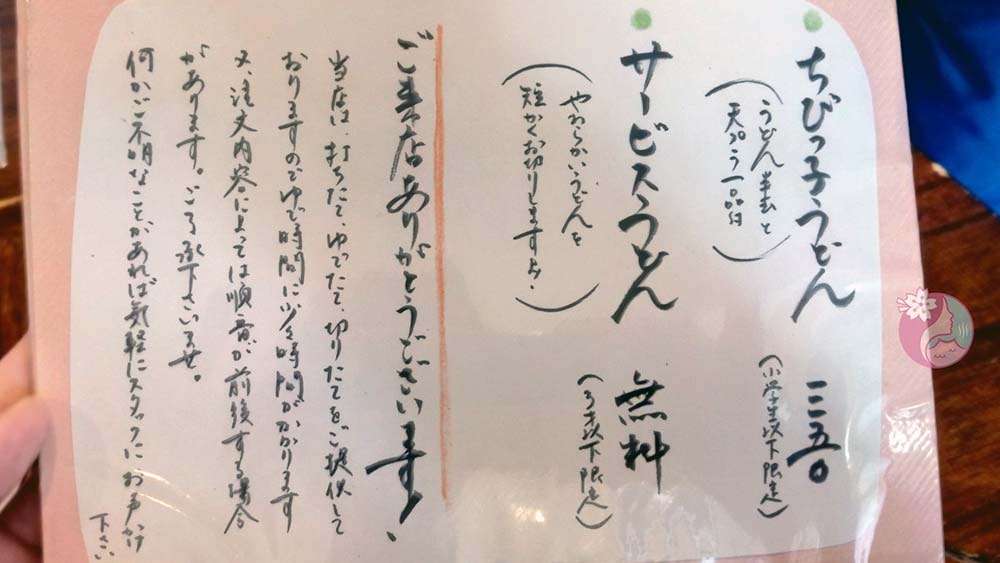 ちびっ子うどん 三五〇
(うどん半玉と
天ぷら一品付)
(小学生以下限定)
サービスうどん 無料
(やわらかいうどんを
短かくお切りしますよ。)
(3才以下限定)
ご来店ありがとうございます。
当店は、打ちたて、ゆでたて、切りたてをご提供して
おりますのでゆで時間に少々時間がかかります
又、注文内容によっては順番が前後する場合
があります。ご了承下さいませ。
何かご不明なことがあれば気軽にスタッフにお声かけ
下さい